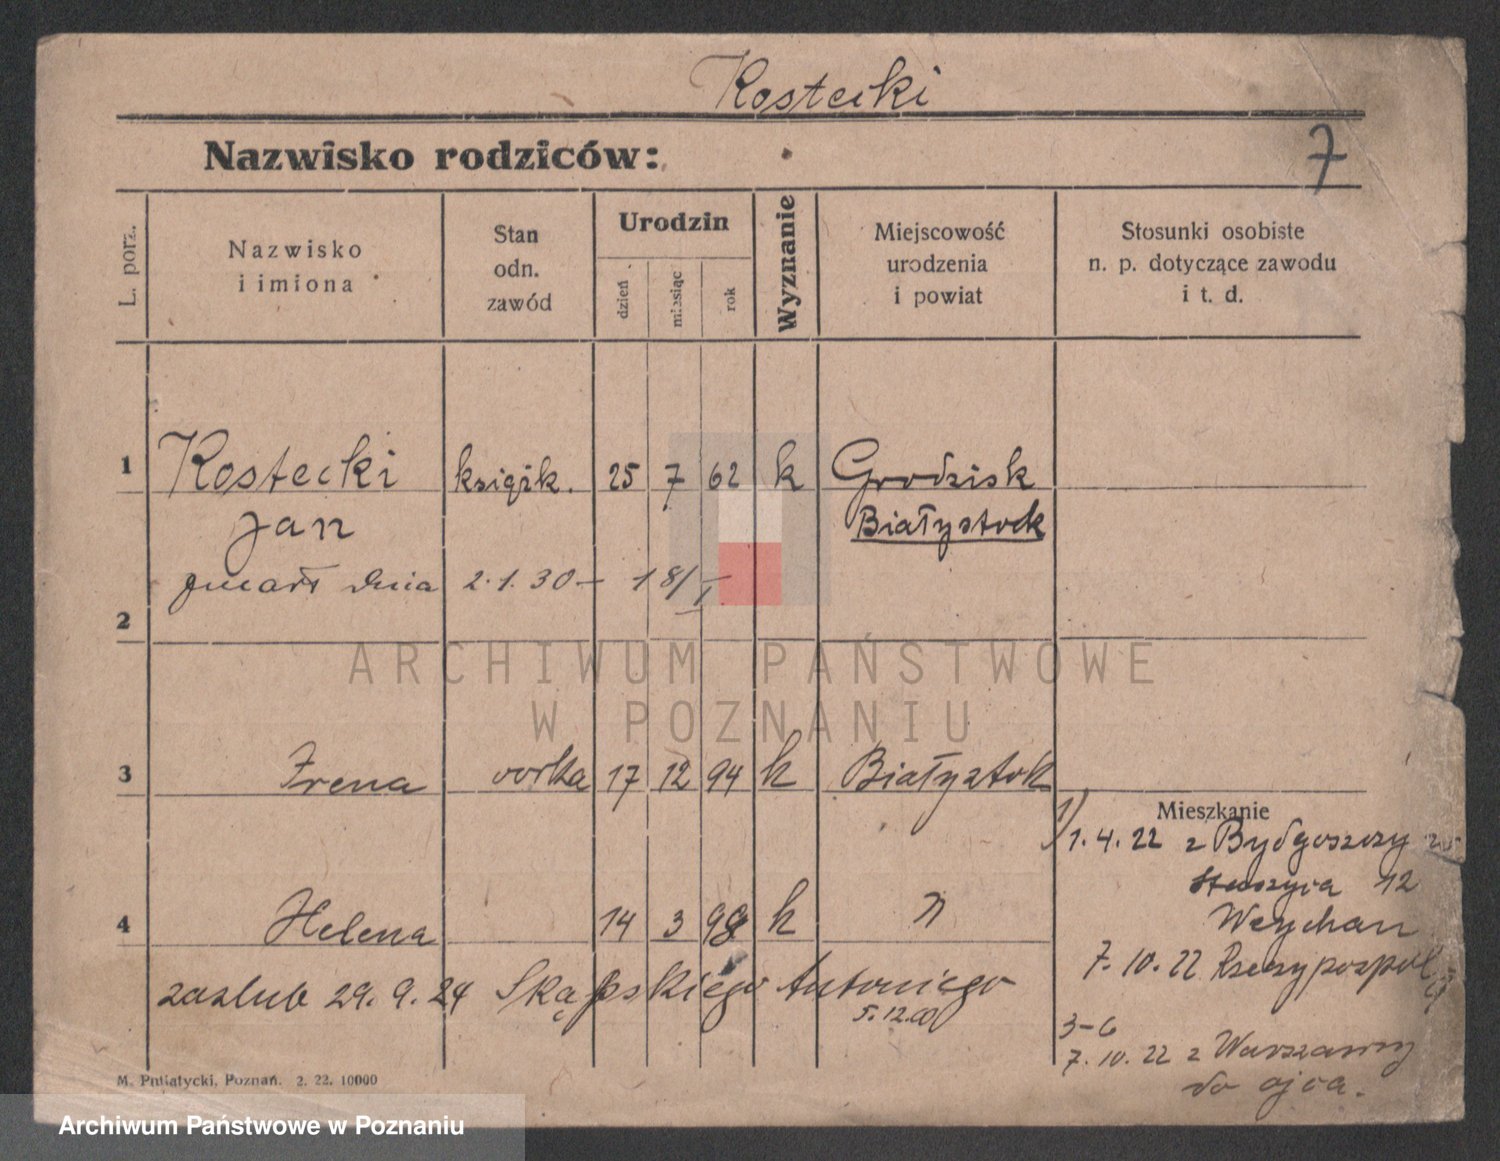 Kostecki
Nazwisko rodziców:
7
L. porz.
Nazwisko
i imiona
Stan
odn.
zawód
Urodzin
dzień
miesiąc
rok
Wyznanie
Miejscowość
urodzenia
i powiat
Stosunki osobiste
n. p. dotyczące zawodu
i t. d.
1 Kostecki książk. 25 7 62 k Grodzisk
Jan Białystok
zmarł dnia 2.1.30 – 18/I
2
ARCHIWUM PAŃSTWOWE
W POZNANIU
3 Irena córka 17 12 94 k Białystok
Mieszkanie
1/ 1.4.22 z Bydgoszczy
12
4 Helena 14 3 98 k "
Weychan
7.10.22 Rzeczypospol
zaślub 29.9.24 Skąpskiego Antoniego
5.12.00
3–6
7.10.22 z Warszawy
do ojca.
M. Putiatycki, Poznań. 2. 22. 10000
Archiwum Państwowe w Poznaniu